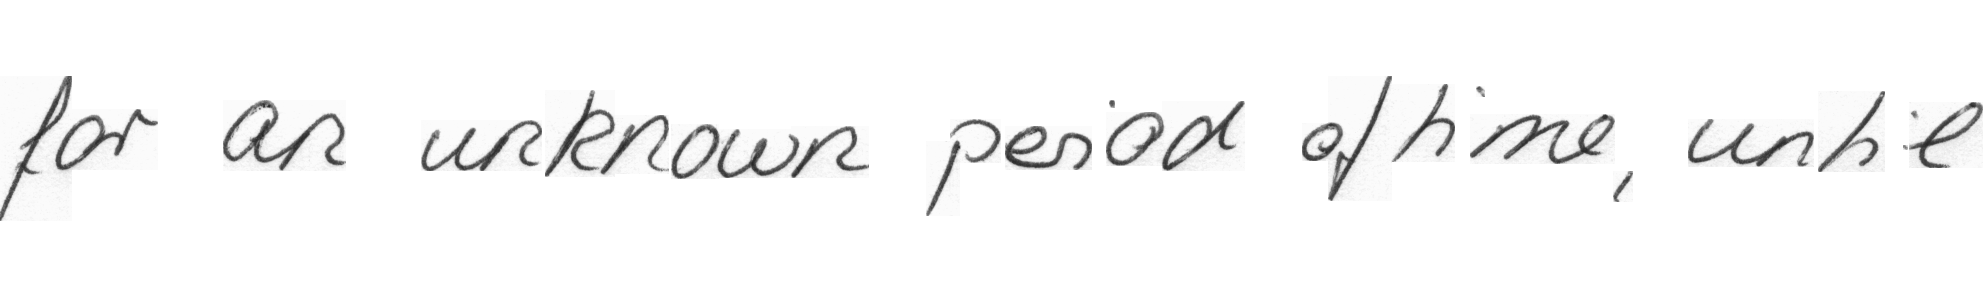 for an unknown period of time, until